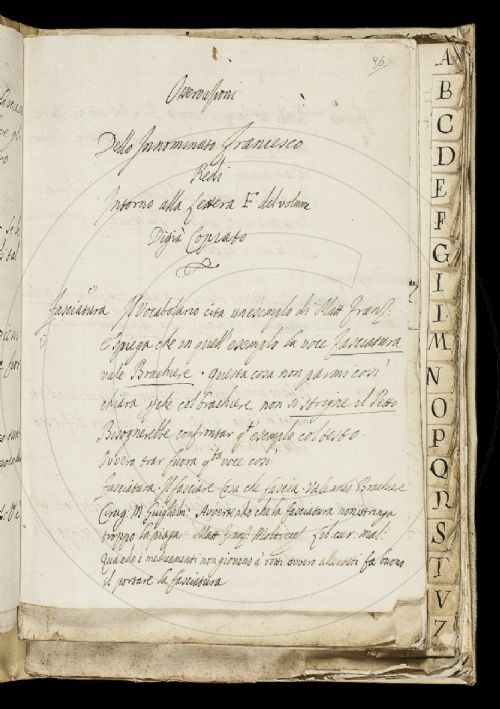 96
Osservazioni
Dello Innominato Francesco
Redi
Intorno alla lettera F del volume
Digià Copiato
fasciatura Il Vocabolario cita un esemplo di Matt Franz:
E spiega che in quell'esemplo la voce fasciatura
vale Brachiere. questa cosa non par mi così
chiara perche col brachiere non si strigne il Petto
Bisognerebbe confrontar qto esemplo col testo.
Ovvero trar fuora qta voce così
fasciatura. Il fasciare Cosa che fascia. Vale anco Brachiere
Cirug. M. Guiglielm: Avvertendo che la fasciatura non stringa
troppo la piaga. Matt Franz:
Quando i medicamenti non giovano a' rotti ovvero allentati fa buono
il portare la fasciatura
A
B
C
D
E
F
G
I
L
M
N
O
P
Q
R
S
T
V
Z